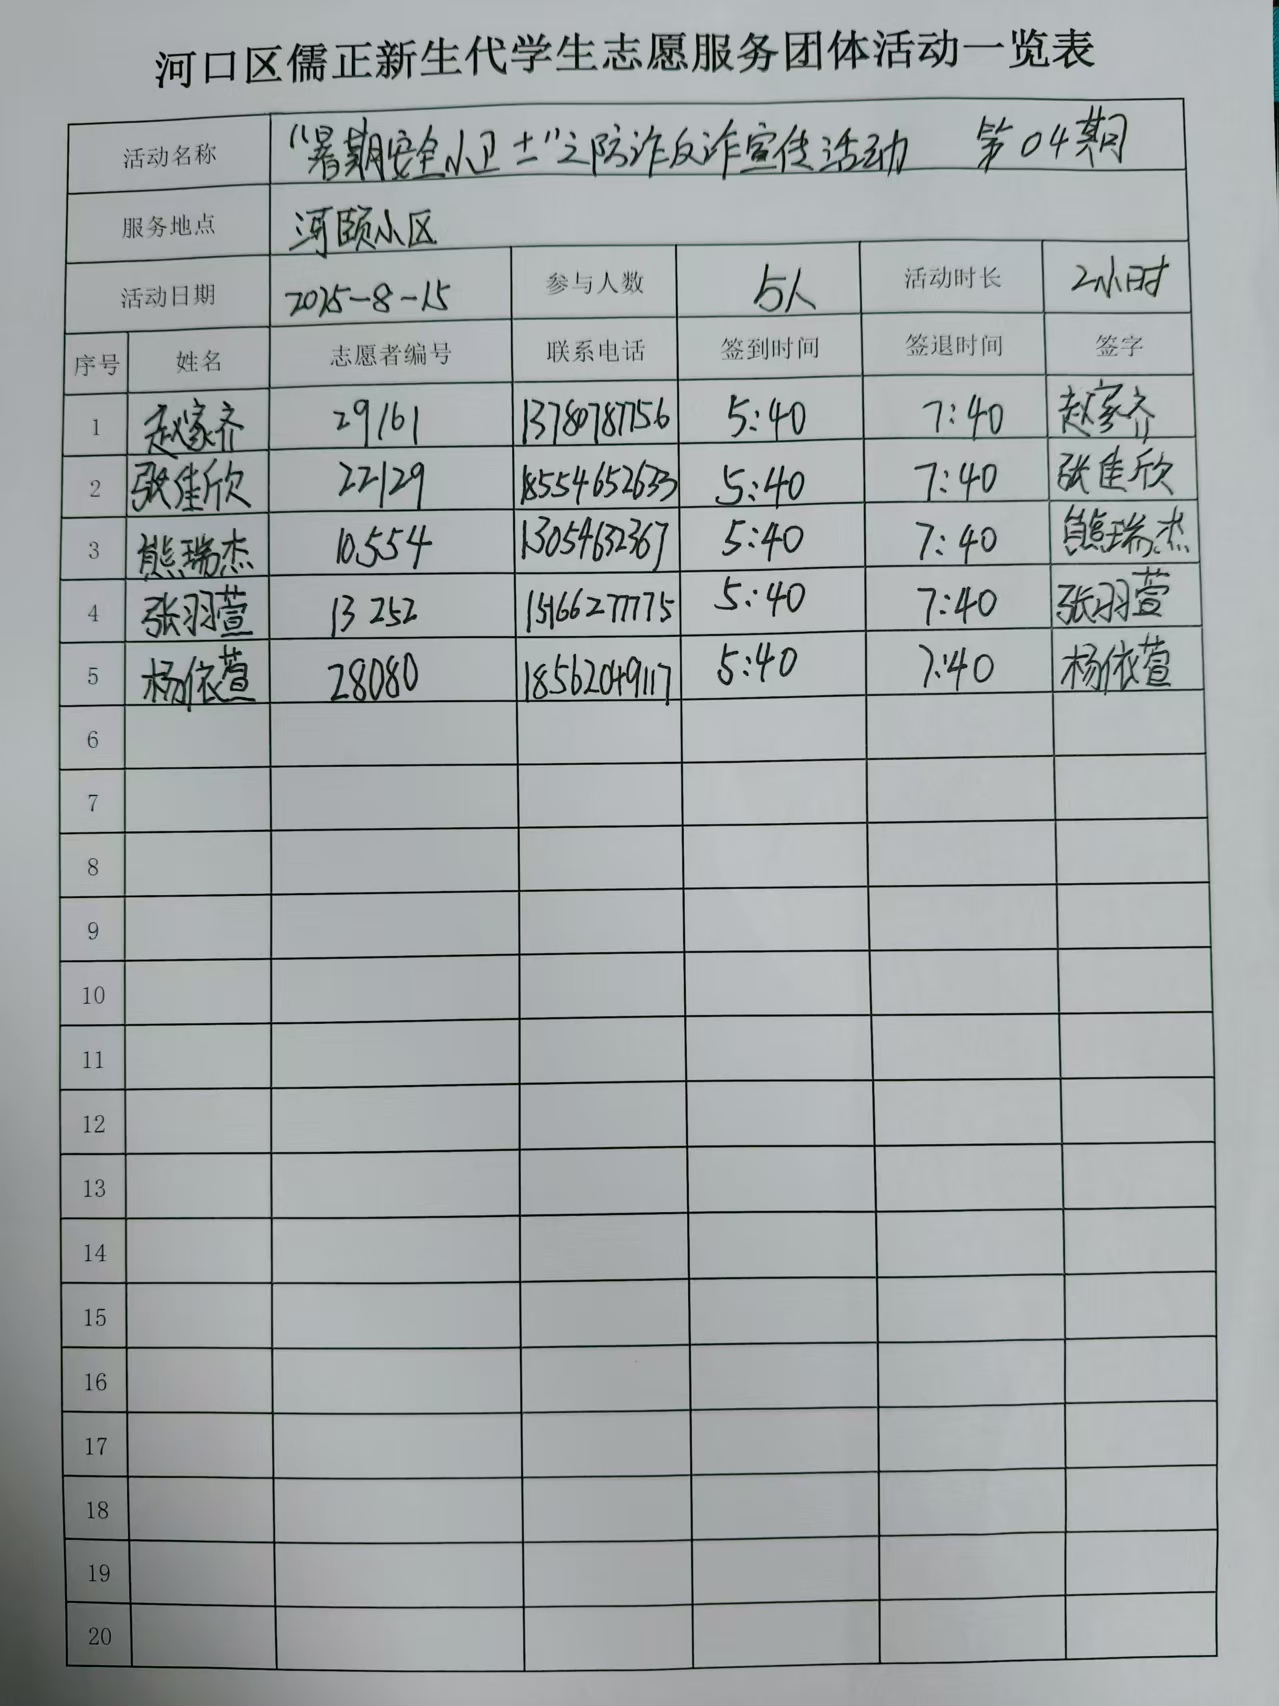 河口区儒正新生代学生志愿服务团体活动一览表
活动名称 “暑期安全小卫士”之防诈反诈宣传活动 第04期
服务地点 河颐小区
活动日期 2025-8-15 参与人数 5人 活动时长 2小时
序号 姓名 志愿者编号 联系电话 签到时间 签退时间 签字
1 赵家齐 29161 13780787756 5:40 7:40 赵家齐
2 张佳欣 22129 18554652633 5:40 7:40 张佳欣
3 熊瑞杰 10554 13054632367 5:40 7:40 熊瑞杰
4 张羽萱 13252 15166277775 5:40 7:40 张羽萱
5 杨依萱 28080 18562049117 5:40 7:40 杨依萱
6
7
8
9
10
11
12
13
14
15
16
17
18
19
20